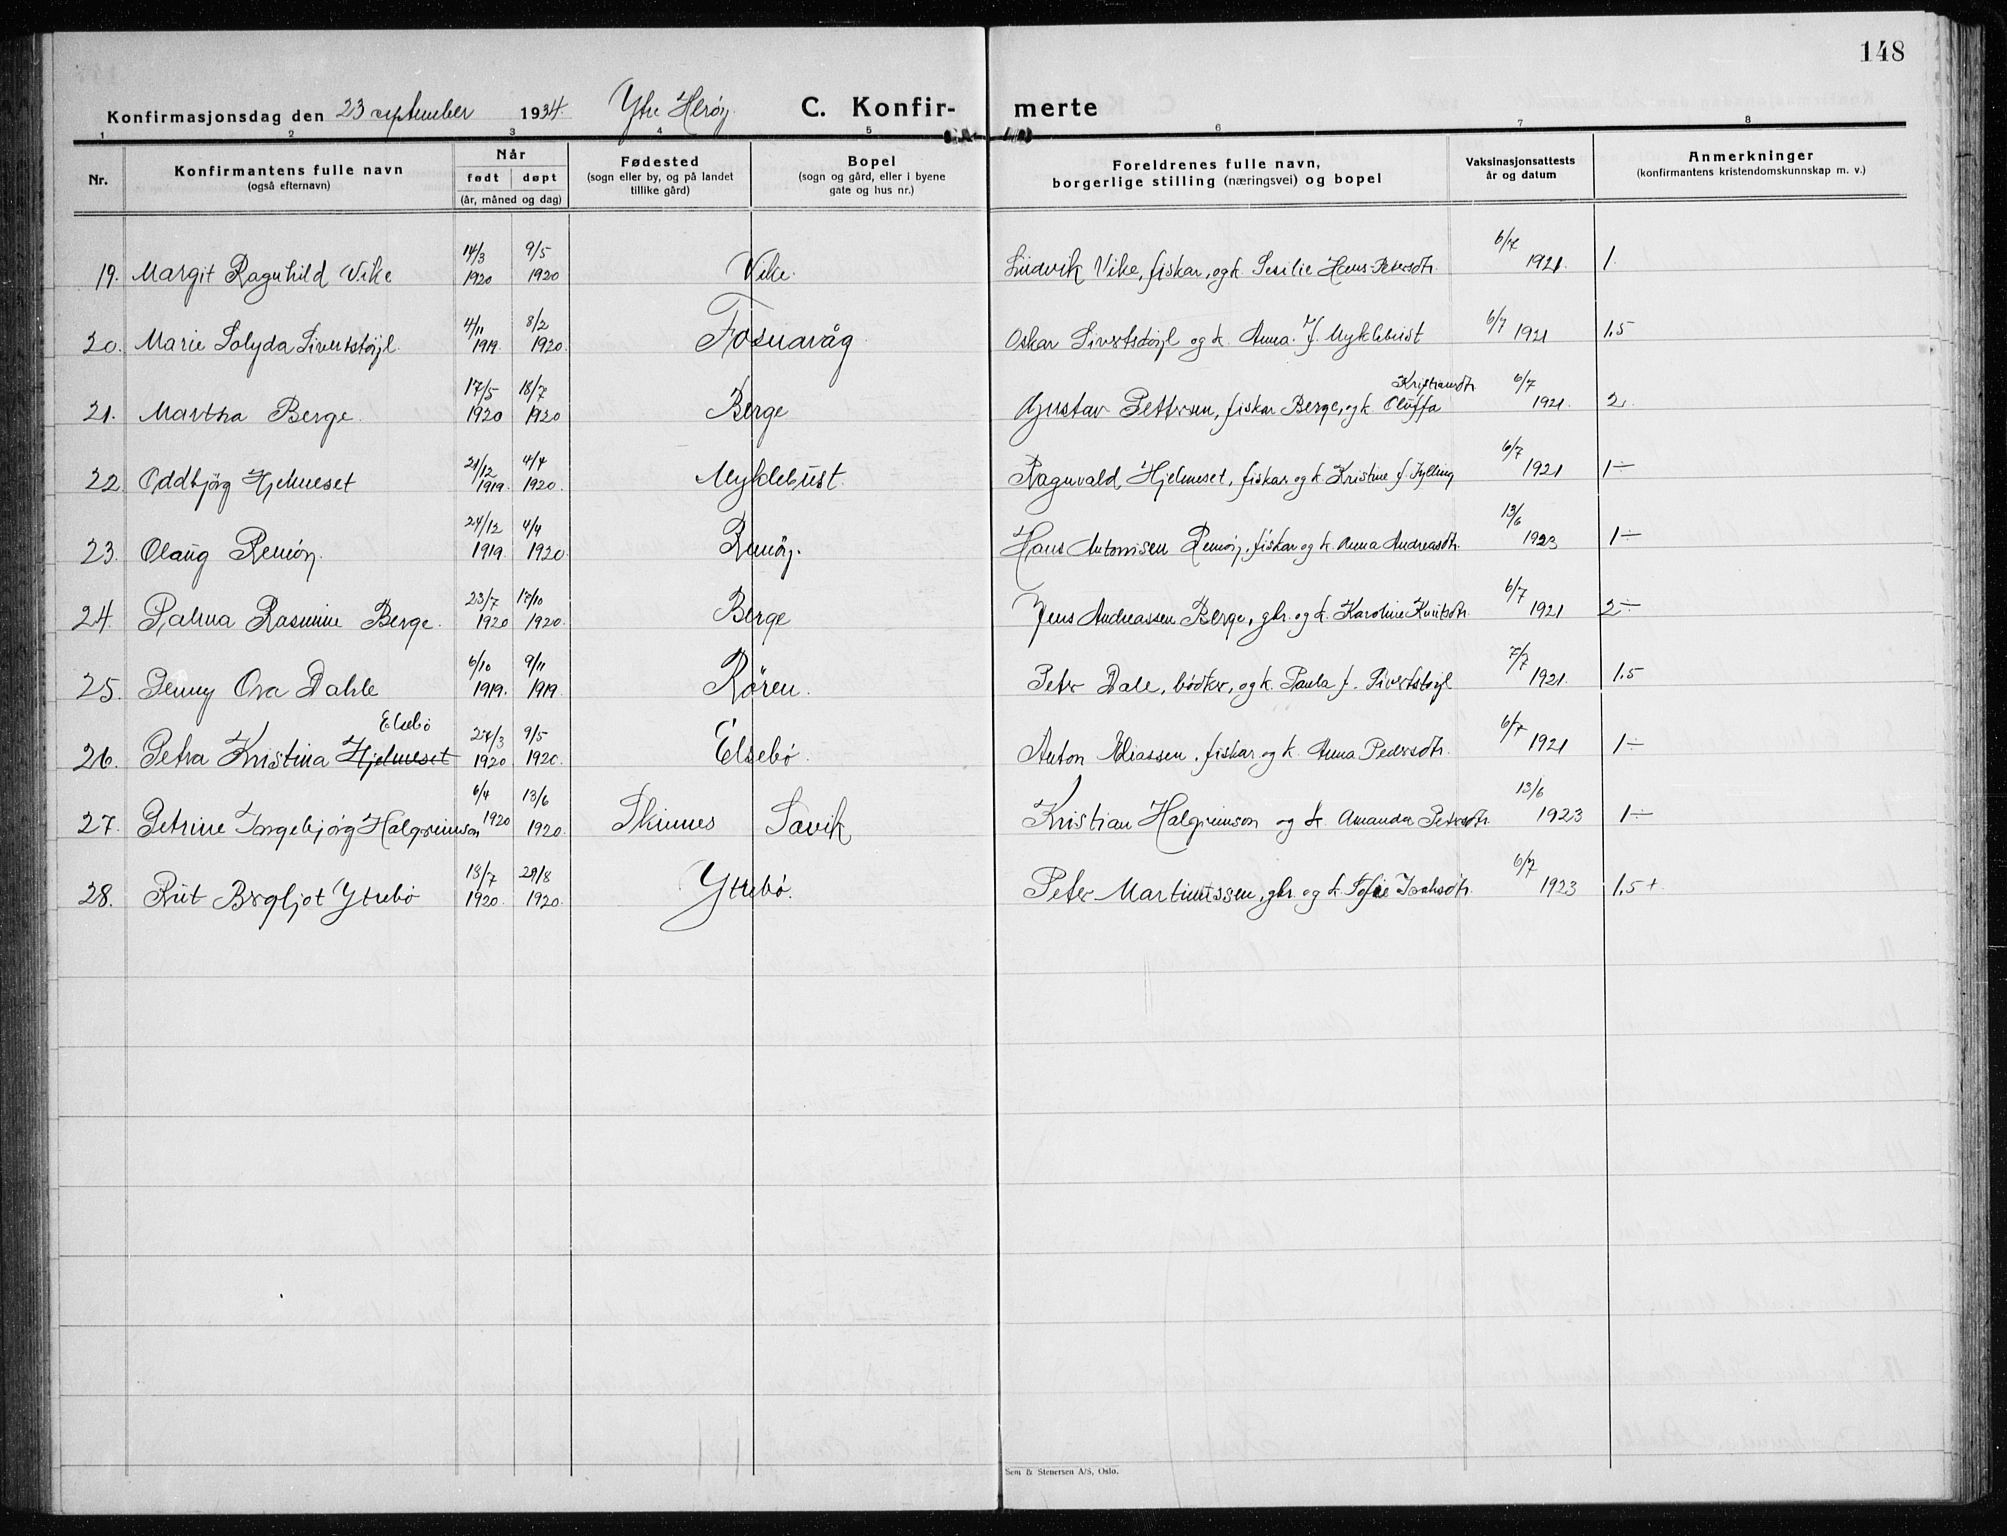 148
Konfirmasjonsdag den 23 september 1934. Ytre Herøy. C. Konfir- merte
1 2 3 4 5 6 7 8
Nr. Konfirmantens fulle navn (også efternavn) Når født døpt (år, måned og dag) Fødested (sogn eller by, og på landet tillike gård) Bopel (sogn og gård, eller i byene gate og hus nr.) Foreldrenes fulle navn, borgerlige stilling (næringsvei) og bopel Vaksinasjonsattests år og datum Anmerkninger (konfirmantens kristendomskunnskap m. v.)
19. Margit Ragnhild Vike 14/3 1920 9/5 1920 Vike. Ludvik Vike, fiskar, og k. Sesilie Hans-Petersdtr. 6/7 1921. 1.
20. Marie Solyda Sivertstøyl 4/11 1919. 8/2 1920. Fosnavåg Oskar Sivertstøyl og k. Anna. f. Myklebust 6/7 1921 1,5
21. Martha Berge. 17/5 1920 18/7 1920 Berge Gustav Pettersen, fiskar Berge, og k. Oluffa Kristiansdtr. 6/7 1921. 2.
22. Oddbjörg Hjelmeset 21/12 1919. 4/4 1920. Myklebust. Ragnvald Hjelmeset, fiskar og k. Kristine f. Jylling 6/7 1921 1÷
23. Olaug Remøy. 24/12 1919. 4/4 1920. Remøy. Hans Antonisen Remøy, fiskar og k. Anna Andreasdtr. 13/6 1923 1÷
24. Palma Rasmine Berge. 23/7 1920 17/10 1920. Berge Jens Andreassen Berge, gbr. og k. Karoline Knutsdtr. 6/7 1921 2÷
25. Jenny Ova Dahle 6/10 1919. 9/11 1919. Røren. Peter Dale, bødker, og k. Paula f. Sivertstøyl 7/7 1921. 1.5
26. Petra Kristina Hjelmeset Elsebø 27/3 1920 9/5 1920. Elsebø. Anton Eliassen, fiskar og k. Anna Pedersdtr. 6/7 1921 1÷
27. Petrine Ingebjørg Halgrimson 6/4 1920 13/6 1920. Skinnes Savik Kristian Halgrimson og k. Amanda Petersdtr. 13/6 1923 1÷
28. Rut Bergljot Ytrebø 13/7 1920. 29/8 1920. Ytrebø. Peter Martinussen, gbr. og k. Sofie 6/7 1923 1,5+
Sem & Stenersen A/S, Oslo.